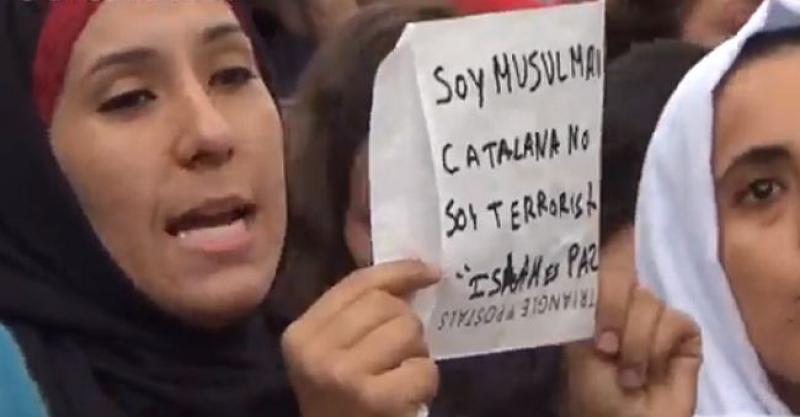 SOY MUSULMA
CATALANA NO
SOY TERRORISTA
"ISLAM ES PAZ
TRIANGLE POSTALS